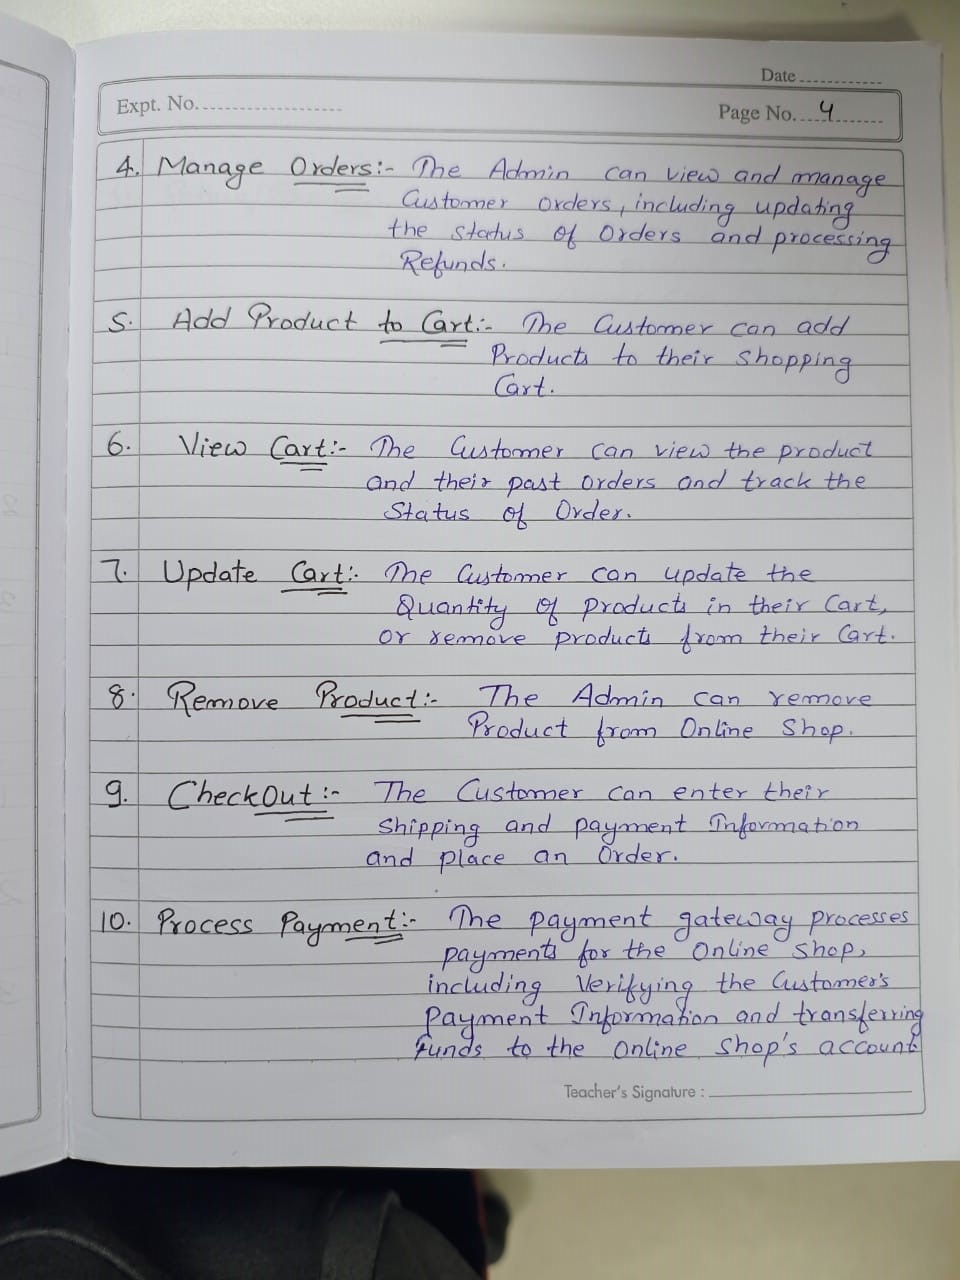 Date
Expt. No.
Page No. 4
4. Manage Orders:- The Admin can view and manage
Customer orders, including updating
the status of Orders and processing
Refunds.
5. Add Product to Cart:- The Customer can add
Products to their shopping
Cart.
6. View Cart:- The Customer can view the product
and their past orders and track the
Status of Order.
7. Update Cart:- The Customer can update the
Quantity of products in their Cart,
or remove products from their Cart.
8. Remove Product:- The Admin can remove
Product from Online Shop.
9. CheckOut:- The Customer can enter their
shipping and payment Information
and place an Order.
10. Process Payment:- The payment gateway processes
payments for the Online shop,
including Verifying the Customer's
Payment Information and transferring
Funds to the Online Shop's account
Teacher's Signature :